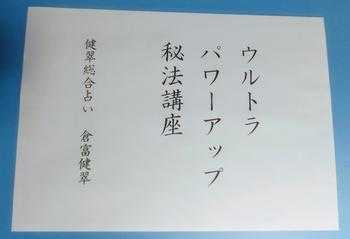 ウルトラ
パワーアップ
秘法講座
健翠総合占い 倉富健翠